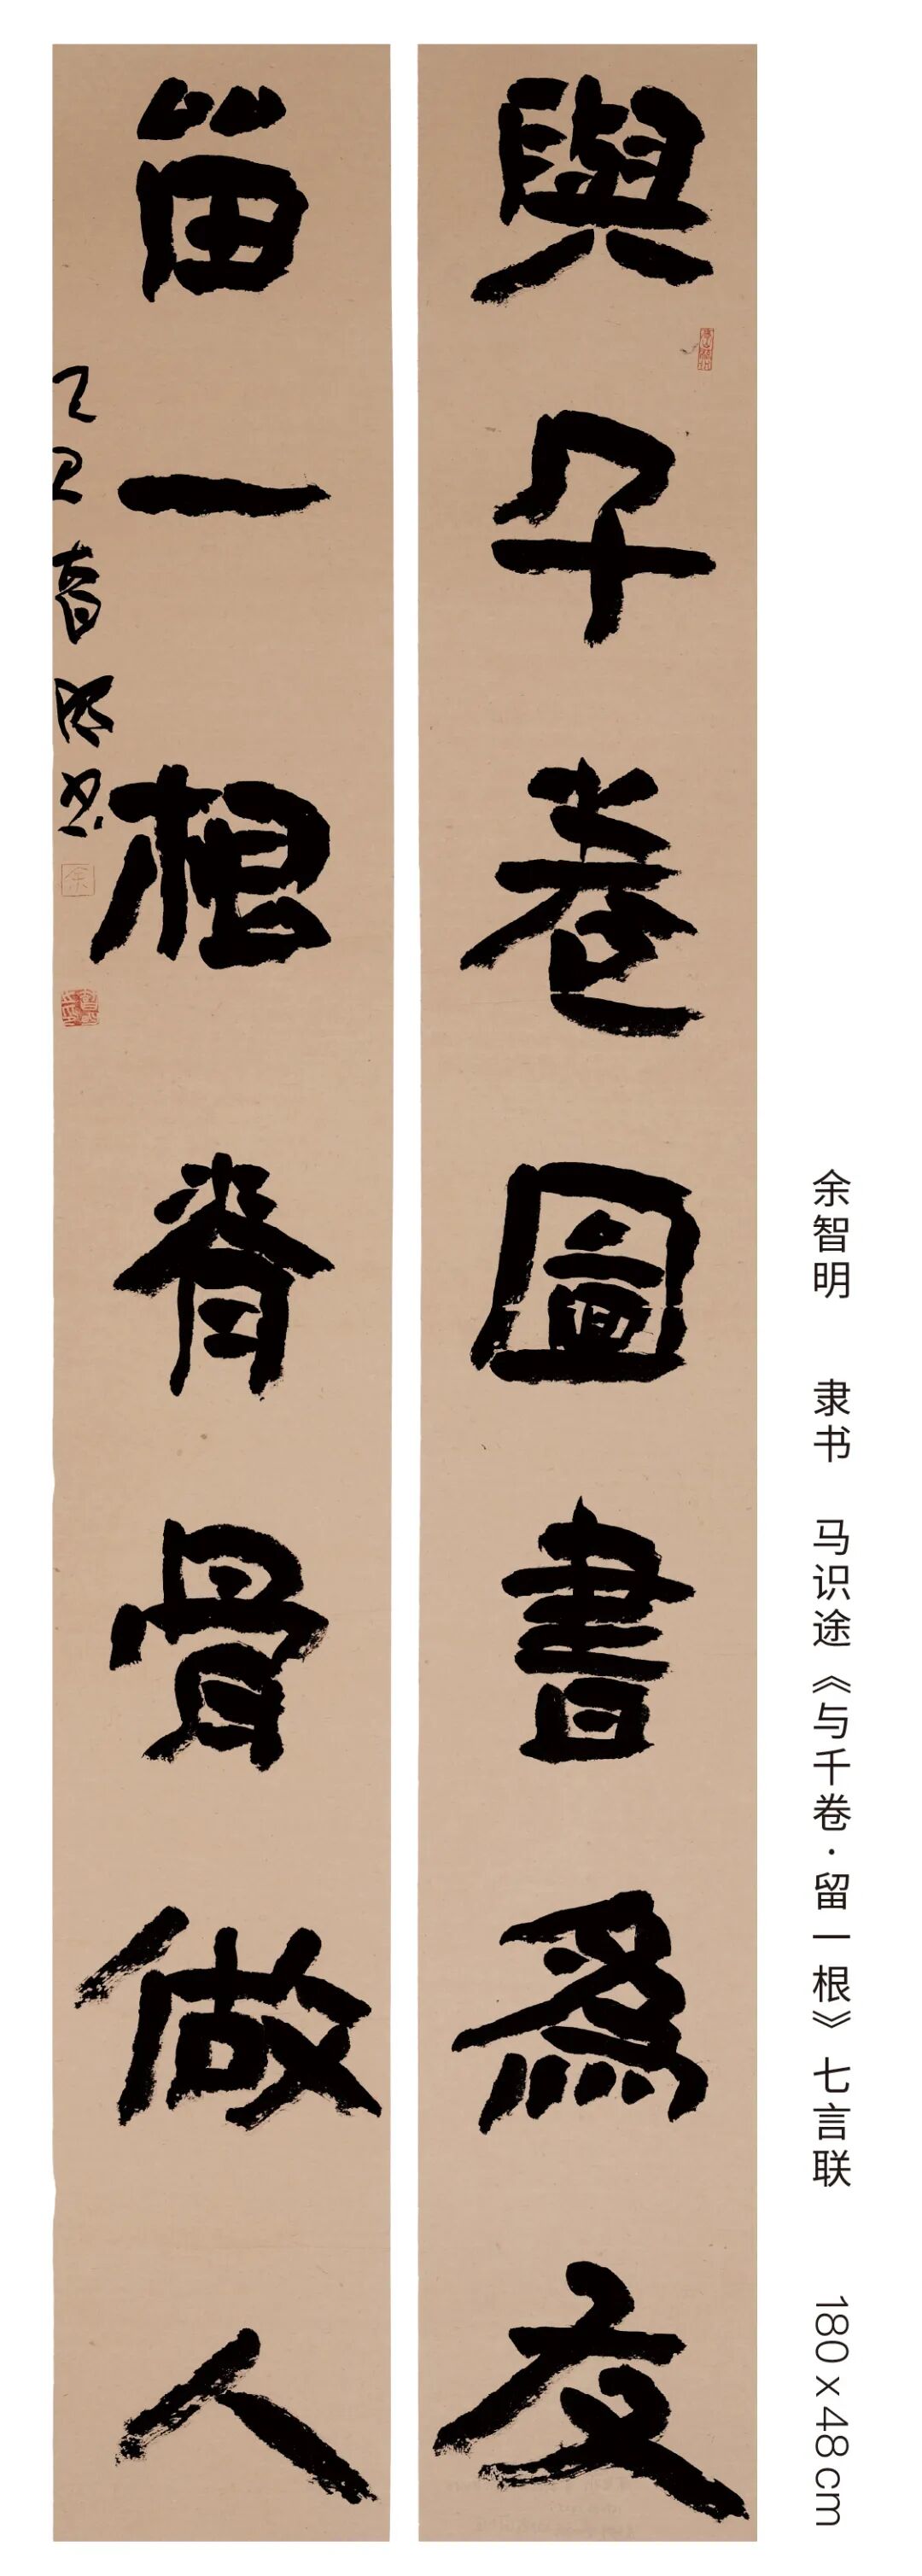 余智明 隶书 马识途《与千卷·留一根》七言联 180x48cm
與千卷圖書爲友
留一根脊骨做人
乙巳
余